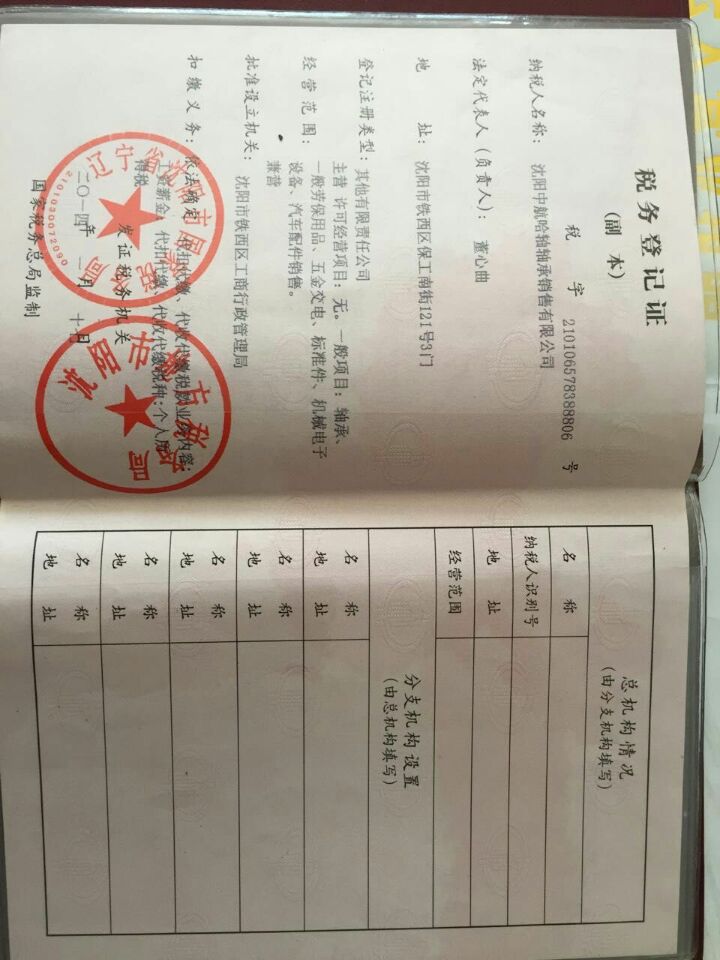 税务登记证
(副 本)
税 字 210106578388806 号
纳税人名称： 沈阳中航哈轴轴承销售有限公司
法定代表人（负责人）： 董心曲
地 址： 沈阳市铁西区保工南街121号3门
登记注册类型： 其他有限责任公司
经 营 范 围： 主营 许可经营项目：无。一般项目：轴承、
一般劳保用品、五金交电、标准件、机械电子
设备、汽车配件销售。
兼营
批准设立机关： 沈阳市铁西区工商行政管理局
扣 缴 义 务： 依法确定 代扣代缴、代收代缴税款业务内容：
工资薪金，代扣代缴、代收代缴税种：个人所
得税
发证税务机关
二〇一四年 一月 十日
国家税务总局监制
辽宁省沈阳市国家税务局
2101030072090
总机构情况
(由分支机构填写)
名 称
纳税人识别号
地 址
经营范围
分支机构设置
(由总机构填写)
名 称
地 址
名 称
地 址
名 称
地 址
名 称
地 址
名 称
地 址